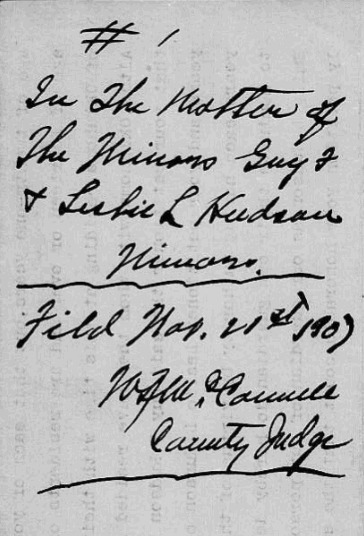 # 1
In The Matter of
The Minors Guy F
& Leslie L Hudson
Minors.
Filed Nov. 21st 1907
W F McConnell
County Judge